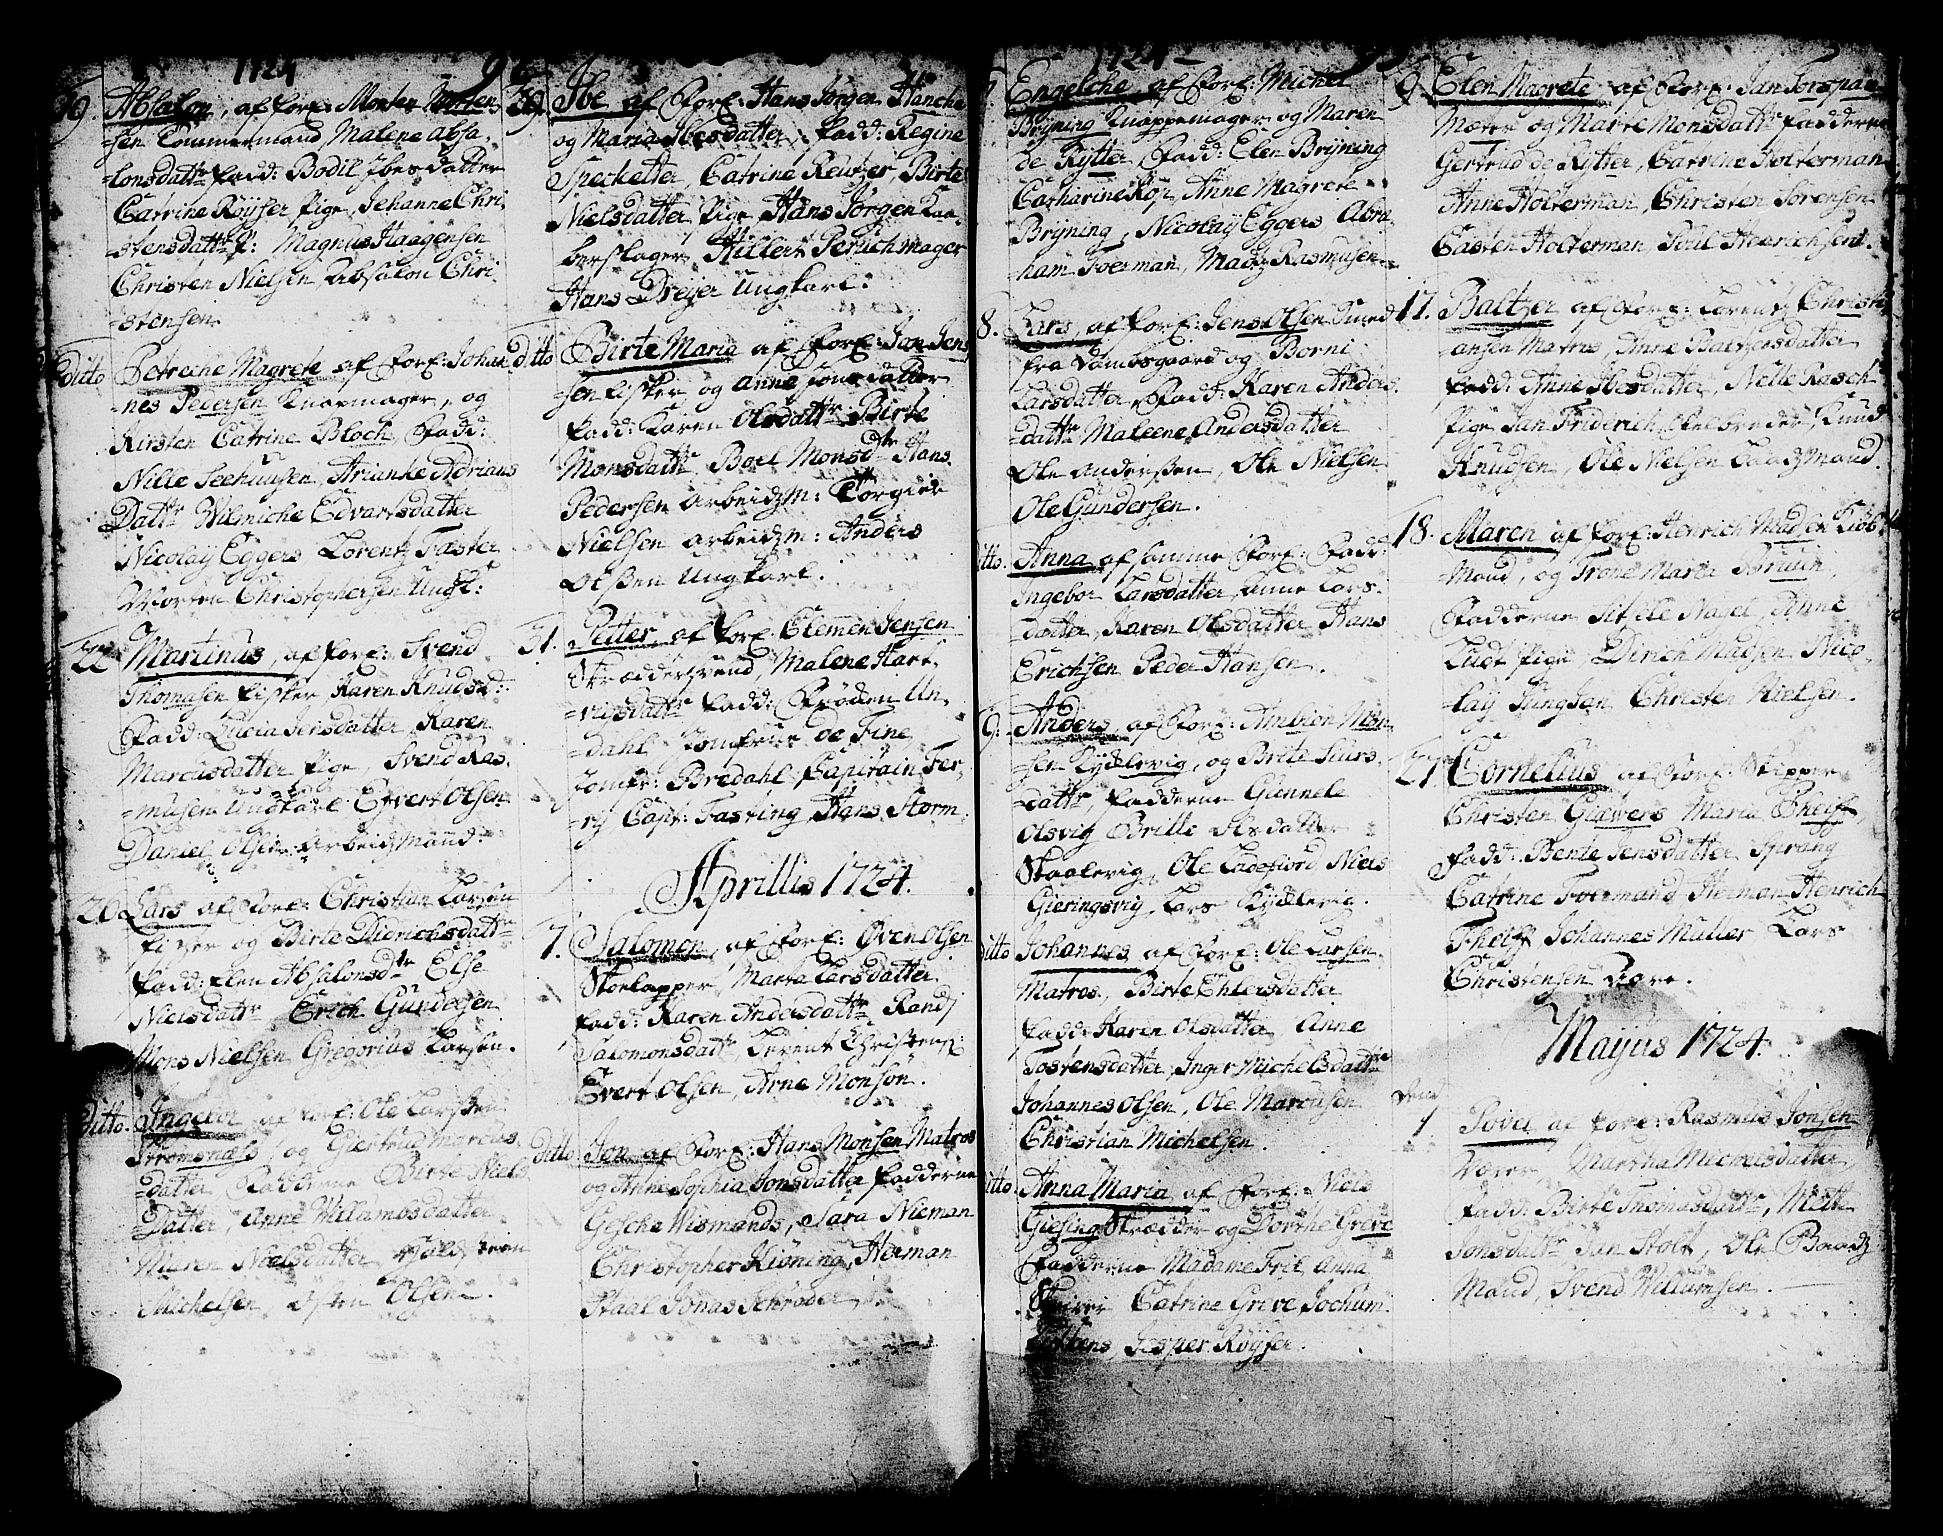 1724
19. Absalon, af Forel: Morten Morten
=sen Tommermand, Malene Absa,
=lonsdattr Fadd: Bodil Ibesdatter
Catrine Röyser Pige, Jehanne Chri,
=stensdattr P: Magnus Haagensen
Christen Nielsen Absalon Chri
=stensen.
ditto Petreche Magrete af Forel: Johan
=nes Pedersen Knapmager, og
Kirsten Catrine Bloch, Fadd:
Nille Seehuusen, Arianke Adrians
Dattr Wilmiche Edvartsdatter
Nicolay Eggers Lorentz Faster
Morten Christophersen Ungk:
22 Martinus, af Forel: Svend
Thomasen Fisker Karen Knudsd:
Fadd: Lucia Jensdatter, Karen
Marcusdatter Pige, Svend Ras,
=musen Ungkarl Evert Olsen
Daniel Olsen Arbeidzmand.
26. Lars af Forel: Christian Larsen
Fisker og Birte Dierichsdattr
Fadd: Elen Absalonsdtr Else
Nielsdattr Erich Gundersen
Mons Nielsen Gregorius Larsen.
Ditto. Ingebor af Forel: Ole Larsen
Strømsnæs, og Giertrud Marcus,
=datter Fadderne Birte Niels
Datter, Anne Willumsdatter
Maren Nielsdatter
Michelsen, Østen Olsen.
29. Ibe af Forel: Hans Jörgen Hanche
og Maria Ibesdatter, Fadd: Regine
Specketter, Catrine Reutzer, Birte
Nielsdatter Pige, Hans Jörgen Kaa,
berslager Hillert Peruchmager
Hans Dreyer Ungkarl:
ditto Birte Maria af Forel: Jon Jens
sen Fisker og Anne Jonsdatter
Fadd: Karen Olsdattr Birte
Monsdattr Boel Monsdtr Hans
Pedersen Arbeidzm: Torgier
Nielsen Arbeidzm: Anders
Olssen Ungkarl.
31. Petter, af Forel Clemen Jensen
Skræddersvend, Malene Hart,
=vigsdattr Fadd: Fröken Un,
=dahl Jomfrue de Fine
Jomfr: Bredahl, Capitain Fer,
=ry Capt: Fasting Hans Storm.
Aprillis 1724.
7. Salomon, af Forel: Oven Olsen
Stoelapper, Marta Larsdatter
Fadd: Karen Andersdattr Randj
Salomonsdattr, Lerent Christens:
Evert Olsen, Arne Monson.
ditto Jon af Forel: Hans Monsen Matros
og Anne Sophia Jonsdatter Fadderne
Gescha Wismands, Sara Nieman
Christopher Kiöning, Herman
Staal Jonas Schröder.
1724
7. Engelche af Forel: Michel
Bryning Knappemager og Maren
de Rytter, Fadd: Elen Bryning
Catharine Röp Anne Magrete
Bryning, Nicolay Eggers Abra
ham Foerman, Madz Rasmusen
8. Lars, af Forel: Jens Olsen Smed
fra Damsgaard og Borni
Larsdatter, Fadd: Karen Anders,
=dattr Maleene Andersdatter
Ole Anderssen, Ole Nielsen
Ole Gundersen.
ditto. Anna af samme Forel: Fadd:
Ingebor Larsdatter Anne Lars,
=datter, Karen Olsdatter Hans
Erichsen Peder Hansen.
9. Anders af Forel: Ambion Mon
=sen Kydelevig, og Brite Siurs
dattr Fadderne Gunnele
Olsvig Brille Elsdatter
Skaalevig, Ole Ladefiord Niels
Gieringsvig Lars Kydlevig.
ditto Johannes af Forel: Ole Larsen
Matros, Birte Ehlersdatter
Fadd: Karen Olsdatter Anne
Tostensdatter, Inger Michelsdattr
Johannes Olsen, Ole Marcusen
Christian Michelsen.
ditto Anna Maria af Forel: Niels
Giesing Skrædder og Dorthe Greve
Fadderne Madame Frit Anna
Catrine Greve, Jochum
Jesper Röyser.
9. Elen Magrete af Forel: Jan Forspan
Mæter og Marte Monsdattr Fadderne
Gertrud de Rytter, Catrine Holterman
Anne Holterman, Christen Sörensen
Casten Holterman Poul Henrichsen.
17. Baltzer af Forel: Lorentz Christi
ansen Matros, Anne Baltzersdatter
Fadd: Anne Ibesdatter, Nelle Rasch
Pige Jan Friderich Knud
Knudsen, Ole Nielsen Baadzmand.
18. Maren af Forel: Henrich Mad en Kiöb
=mand, og Trone Marta Bruun,
Fadderne Sitzele Nagel, Anne
Ludt Pige Dirich Madsen, Nico,
lay Jungsan Christen Nielsen.
27 Cornelius af Forel: Skipper
Christen Glavers Maria Pheiff,
Fadd: Bente Jensdatter Sprang
Catrine Foermand Herman Henrich
Pheiff Johannes Müller Lars
Christensen Pore.
Mayus 1724.
1 Povel af Forel: Rasmus Jonsen
Martha Meinersdatter
Fadd: Birte Thomasdattr, Mette
Jonsdattr Jan Stolt, Ole Baadz
mand, Svend Willumsen.